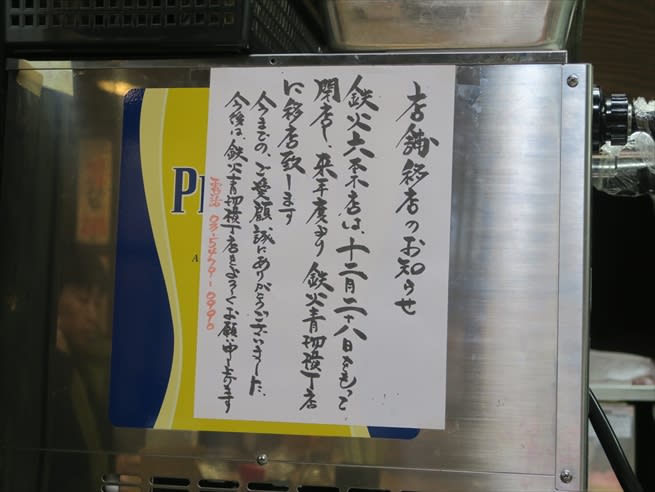 店舗移店のお知らせ
鉄火大木店は、十二月二十八日をもって
閉店し、来年度より 鉄火青物横丁店
に移店致します
今までの、ご愛顧誠にありがとうございました。
今後は、鉄火青物横丁店をよろしくお願い申し上げます
電話 03-5479-0990
P
A